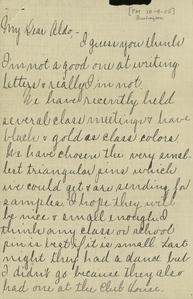 [PM 10-9-05]
Burlington
My Dear Aldo -
I guess you think
I'm not a good one at writing
letters & really I'm not.
We have recently held
several class meetings & have
black & gold as class colors.
We have chosen the very smal-
lest triangular pins which
we could get & are sending for
samples. I hope they will
be nice & small enough. I
think any class or school
pin is best if it is small. Last
night they had a dance but
I didn't go because they also
had one at the Club House.